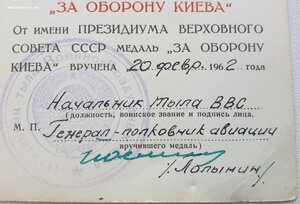 „ЗА ОБОРОНУ КИЕВА"
От имени ПРЕЗИДИУМА ВЕРХОВНОГО
СОВЕТА СССР МЕДАЛЬ „ЗА ОБОРОНУ
КИЕВА" ВРУЧЕНА 20 февр. 1962 года
Начальник тыла ВВС
(должность, воинское звание и подпись лица,
М. П. Генерал-полковник авиации
вручившего медаль)
/Лопынин/